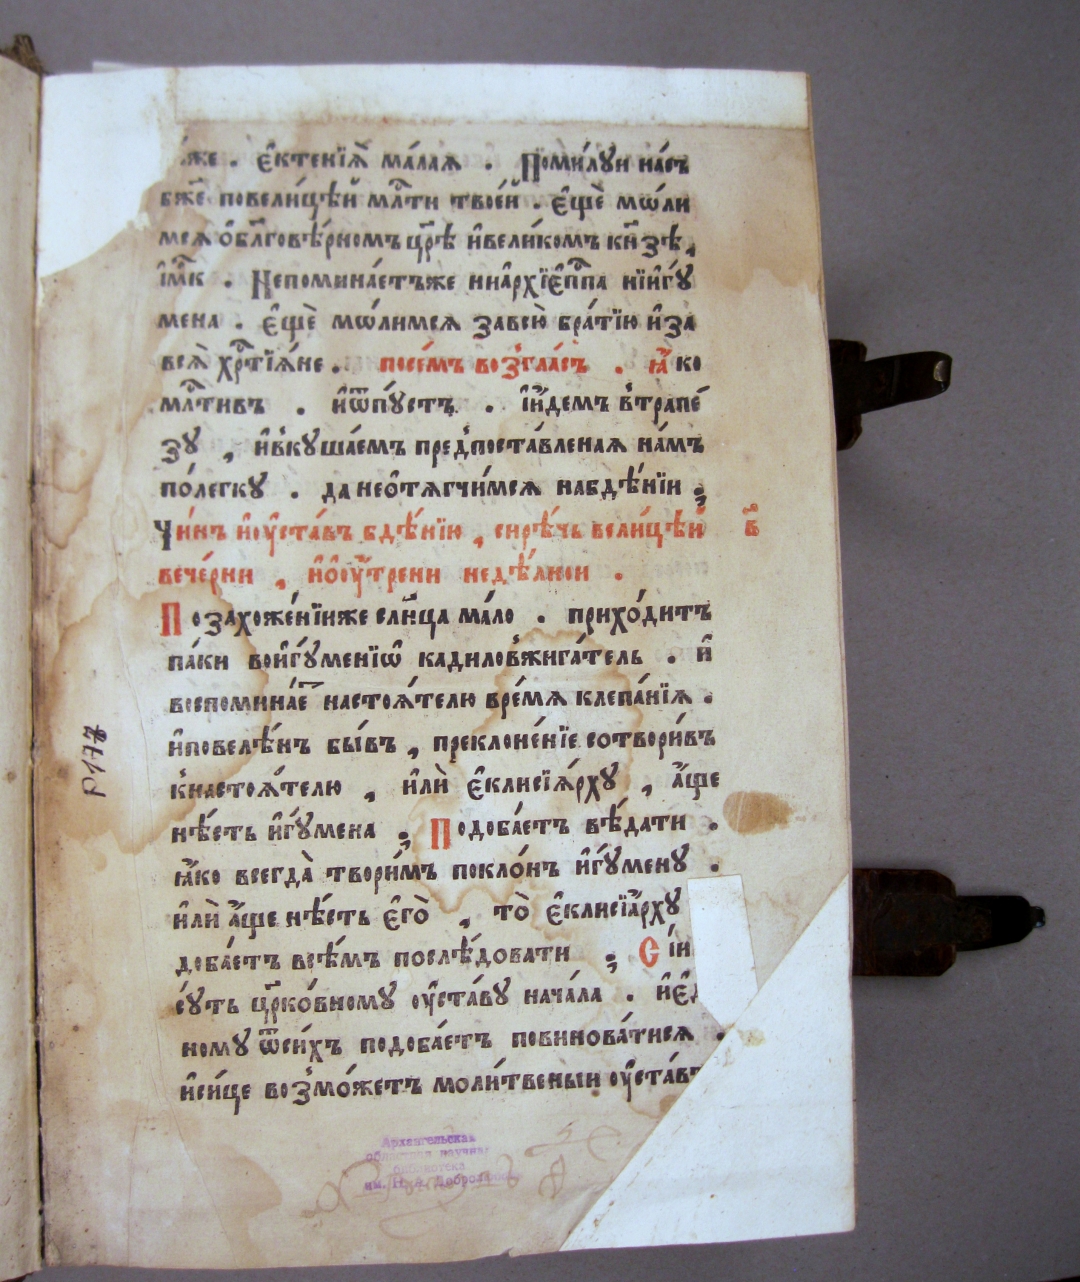 же . є҆ктенїѧ̀ ма́лаѧ . Поми́лꙋи на́съ
бж҃е повели́цѣй мл҇ти твое́й . є҆щѐ мѡ́ли
мсѧ ѡ҆бл҃гове́рномъ цр҃ѣ и҆вели́комъ кн҃зѣ ,
і҆м҇к . Непомина́етъже ниа҆рхїє҆п҇па нїи҆гꙋ́
мена . є҆щѐ мѡ́лимсѧ завсю̀ бра́тїю и҆за
всѧ̀ хр҇тїѧ́не . посе́мъ во́згла́съ . ꙗ҆́ко
мл҇тивъ . и҆ѿпꙋ́стъ . і҆и҆́демъ в̾трапе́
зꙋ , и҆вкꙋша́емъ пред̾поста́вленаѧ на́мъ
по́легкꙋ . да неѻ҆тѧгчи́мсѧ набдѣ́нїи ;
Чи́нъ и҆ᲂу҆ста́въ бдѣ́нїю , си́рѣчь вели́цѣй в҃
вече́рни , и҆ѻ҆ᲂу҆́трени недѣ́лнои .
Позахоже́нїиже сл҃нца ма́ло . прихо́дитъ
па́ки вои҆гꙋ́менїѡ҆ кадиловжига́тель . и҆
воспомина́е настоѧ́телю вре́мѧ клепа́нїѧ .
и҆повелѣ́нъ бы́въ , преклоне́нїе сотвори́въ
кнастоѧ́телю , и҆лѝ є҆клисїѧ́рхꙋ , а҆́ще
нѣ́сть и҆гꙋ́мена ; Подоба́етъ вѣ́дати .
ꙗ҆́ко всегда̀ твори́мъ покло́нъ и҆гꙋ́менꙋ .
и҆лѝ а҆́ще нѣ́сть є҆го̀ , то̀ є҆клисїа́рхꙋ
доба́етъ всѣ́мъ послѣ́довати ; Сїи
сꙋ́ть цр҃ко́вномꙋ ᲂу҆ста́вꙋ нача́ла .
номꙋ ѿси́хъ подоба́етъ повинова́тисѧ .
и҆си́це во́змо́жетъ моли́твеныи ᲂу҆ста́въ
Архангельская
областная научная
библиотека
им. Н. А. Добролюбова